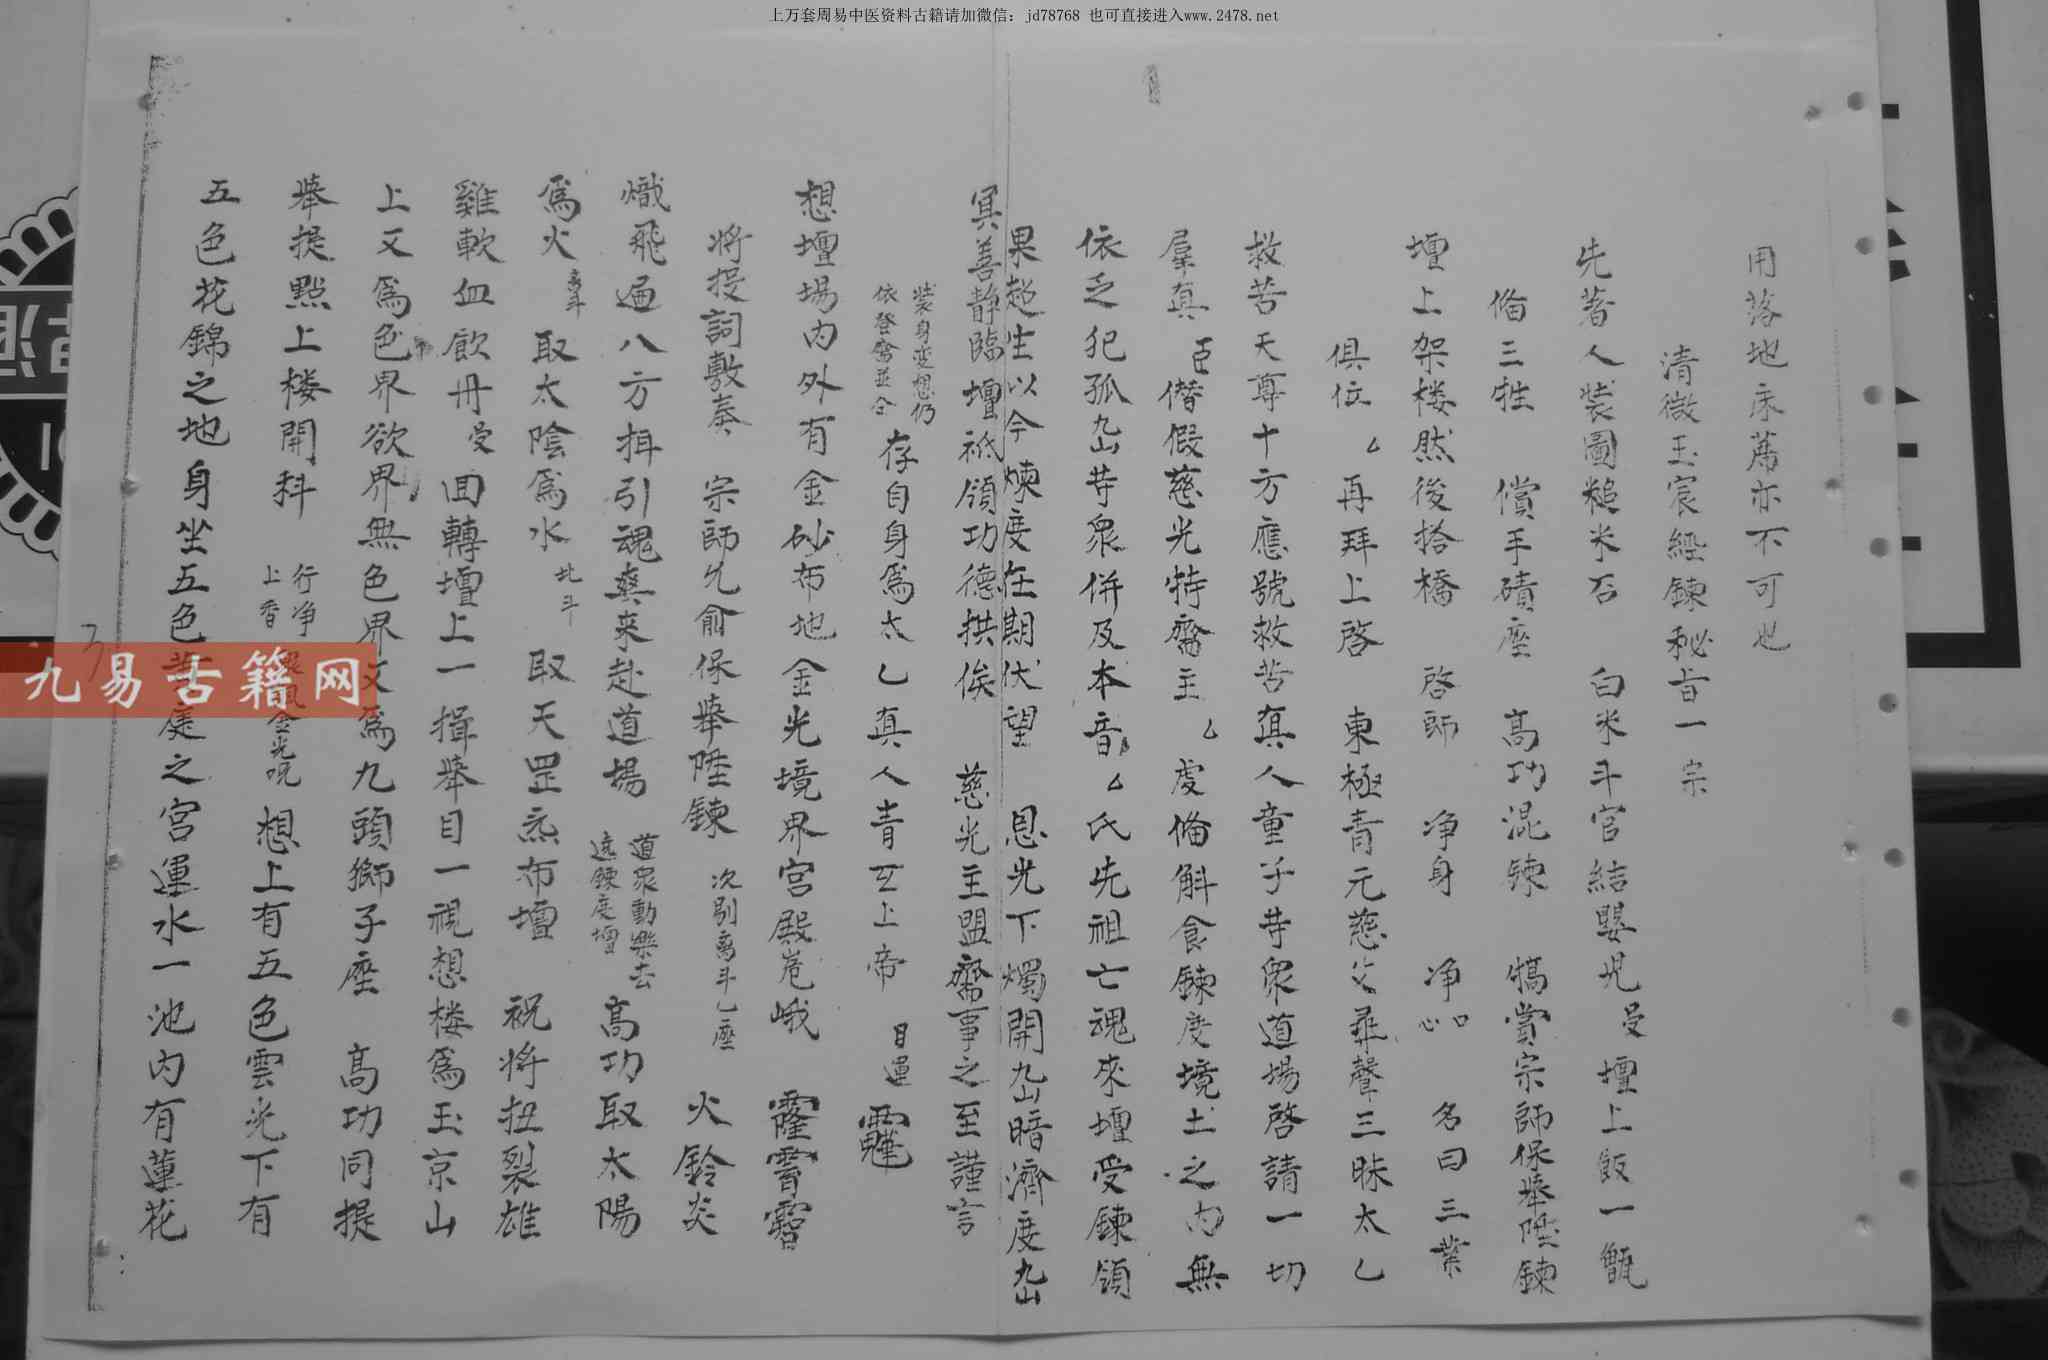 上万套周易中医资料古籍请加微信：jd78768 也可直接进入www.2478.net
用落地床荐亦不可也
清微玉宸經鍊秘旨一宗
先著人裝圖糙米石 白米斗官結嬰児受壇上飯一甑
俻三牲 償手磧座 高功混鍊 犒賞宗師保舉陞鍊
壇上架楼然後拾橋 啓師 净身 净口心 名曰三業
俱位 再拜上啓 東極青元慈父尋聲三昧太乙
救苦天尊十方應號救苦真人童子䓁眾道場啓請一切
羣真臣僭假慈光特齋主厶虔俻斛食鍊度境土之内無
依乏犯孤䓁眾併及本音厶氏先祖亡魂來壇受鍊領
果超生以今煉度在期伏望 恩光下燭開暗濟度
冥善静臨壇祗領功德拱俟 慈光主盟齋事之至謹言
裝身変想仍
依登齋並仝
存自身爲太乙真人青玄上帝 目運
想壇場内外有金砂布地金光境界宮殿嵬峨
將投詞敷奏 宗師允俞保舉陞鍊 次剔离斗乙座 火鈴炎
熾飛遍八方揖引魂爽来赴道場 道眾動樂去遶鍊度壇 高功取太陽
爲火 取太陰爲水 北斗 取天罡炁布壇 祝将扭裂雄
雞軟血飲丹受回轉壇上一揖舉目一視想楼爲玉京山
上又爲色界欲界無色界又爲九頭獅子座 高功同提
舉提點上楼開科 行净上香 金光呪 想上有五色雲光下有
五色花錦之地身坐五色之宮運水一池内有蓮花
九易古籍网